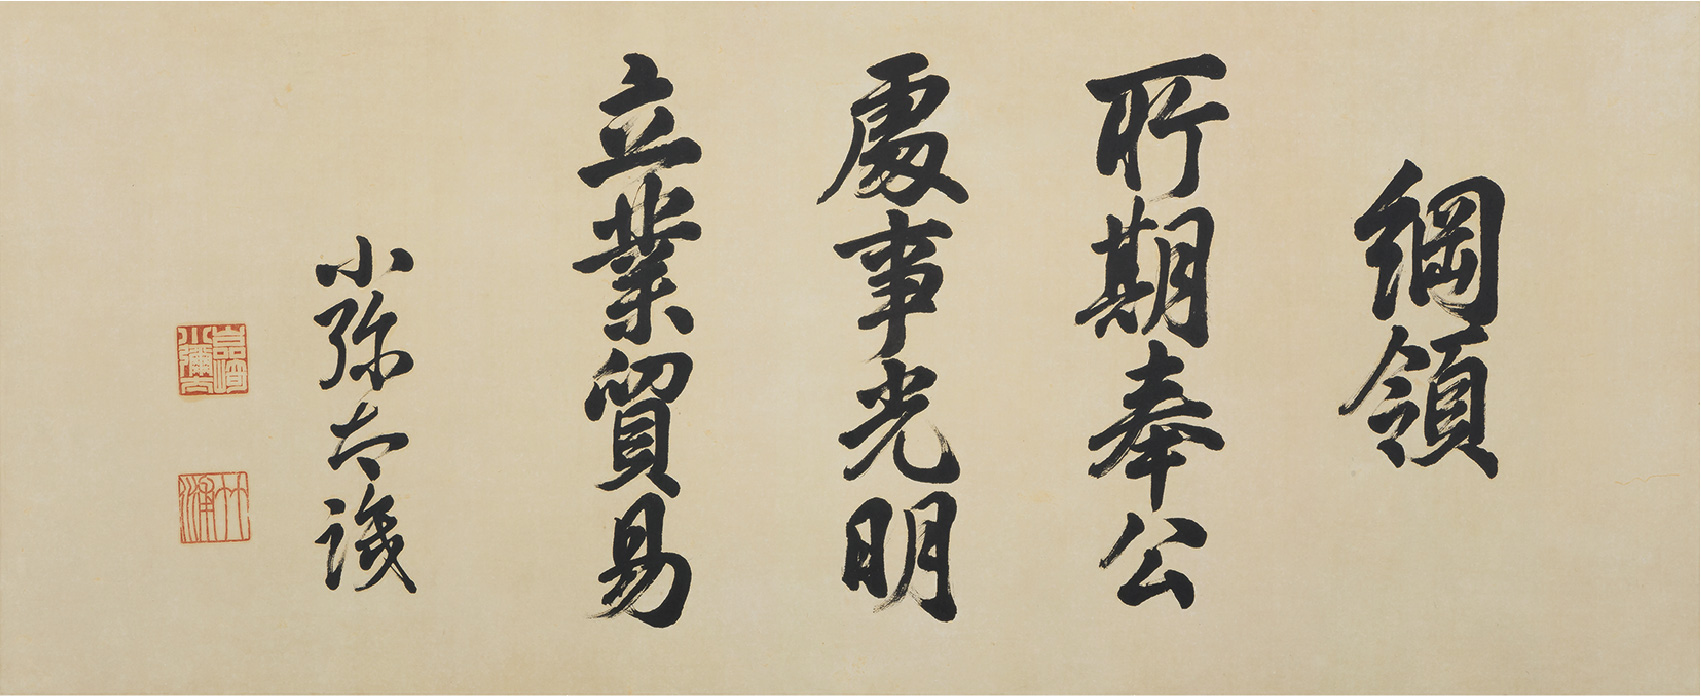 綱領
所期奉公
處事光明
立業貿易
小弥太識
岩崎小彌太